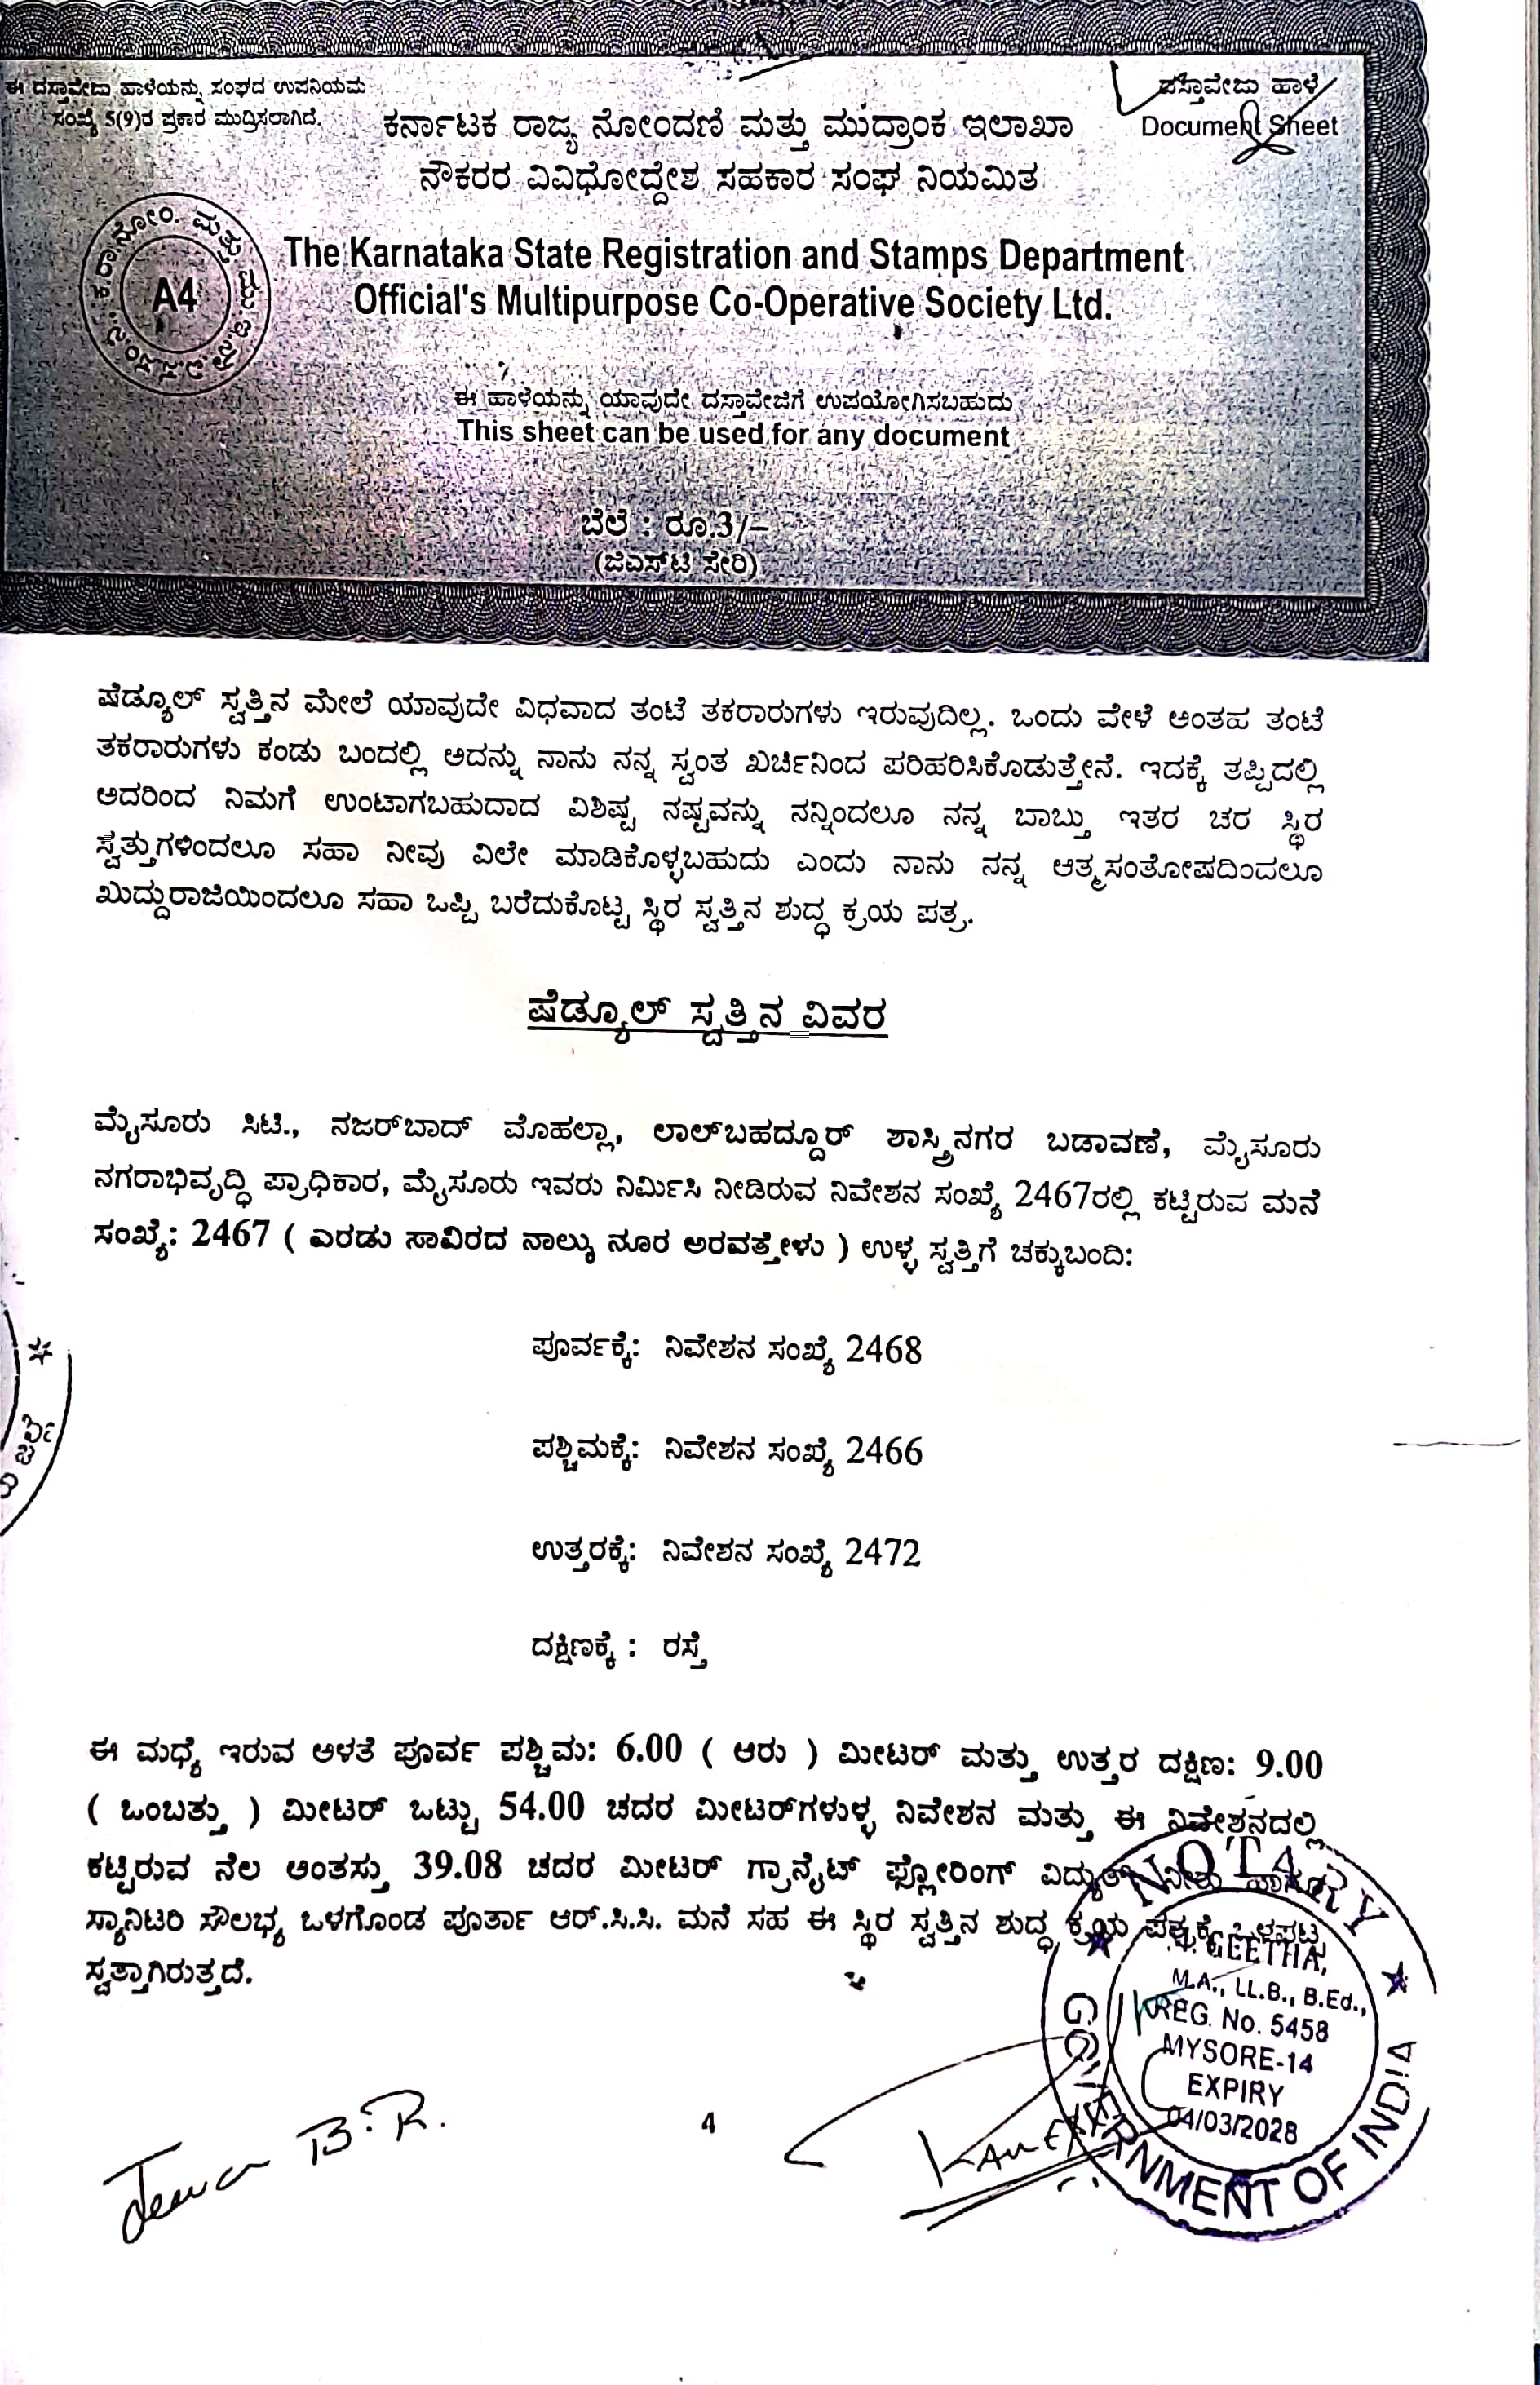 ಈ ದಸ್ತಾವೇಜು ಹಾಳೆಯನ್ನು ಸಂಘದ ಉಪನಿಯಮ
ಸಂಖ್ಯೆ 5(9)ರ ಪ್ರಕಾರ ಮುದ್ರಿಸಲಾಗಿದೆ.
ದಸ್ತಾವೇಜು ಹಾಳೆ
Document Sheet
ಕರ್ನಾಟಕ ರಾಜ್ಯ ನೋಂದಣಿ ಮತ್ತು ಮುದ್ರಾಂಕ ಇಲಾಖಾ
ನೌಕರರ ವಿವಿಧೋದ್ದೇಶ ಸಹಕಾರ ಸಂಘ ನಿಯಮಿತ
A4
The Karnataka State Registration and Stamps Department
Official's Multipurpose Co-Operative Society Ltd.
ಈ ಹಾಳೆಯನ್ನು ಯಾವುದೇ ದಸ್ತಾವೇಜಿಗೆ ಉಪಯೋಗಿಸಬಹುದು
This sheet can be used for any document
ಬೆಲೆ : ರೂ.3/-
(ಜಿಎಸ್‌ಟಿ ಸೇರಿ)
ಷೆಡ್ಯೂಲ್ ಸ್ವತ್ತಿನ ಮೇಲೆ ಯಾವುದೇ ವಿಧವಾದ ತಂಟೆ ತಕರಾರುಗಳು ಇರುವುದಿಲ್ಲ. ಒಂದು ವೇಳೆ ಅಂತಹ ತಂಟೆ
ತಕರಾರುಗಳು ಕಂಡು ಬಂದಲ್ಲಿ ಅದನ್ನು ನಾನು ನನ್ನ ಸ್ವಂತ ಖರ್ಚಿನಿಂದ ಪರಿಹರಿಸಿಕೊಡುತ್ತೇನೆ. ಇದಕ್ಕೆ ತಪ್ಪಿದಲ್ಲಿ
ಅದರಿಂದ ನಿಮಗೆ ಉಂಟಾಗಬಹುದಾದ ವಿಶಿಷ್ಟ ನಷ್ಟವನ್ನು ನನ್ನಿಂದಲೂ ನನ್ನ ಬಾಬ್ತು ಇತರ ಚರ ಸ್ಥಿರ
ಸ್ವತ್ತುಗಳಿಂದಲೂ ಸಹಾ ನೀವು ವಿಲೇ ಮಾಡಿಕೊಳ್ಳಬಹುದು ಎಂದು ನಾನು ನನ್ನ ಆತ್ಮಸಂತೋಷದಿಂದಲೂ
ಖುದ್ದುರಾಜಿಯಿಂದಲೂ ಸಹಾ ಒಪ್ಪಿ ಬರೆದುಕೊಟ್ಟ ಸ್ಥಿರ ಸ್ವತ್ತಿನ ಶುದ್ಧ ಕ್ರಯ ಪತ್ರ.
ಷೆಡ್ಯೂಲ್ ಸ್ವತ್ತಿನ ವಿವರ
ಮೈಸೂರು ಸಿಟಿ., ನಜರ್‌ಬಾದ್ ಮೊಹಲ್ಲಾ, ಲಾಲ್‌ಬಹದ್ದೂರ್ ಶಾಸ್ತ್ರಿನಗರ ಬಡಾವಣೆ, ಮೈಸೂರು
ನಗರಾಭಿವೃದ್ಧಿ ಪ್ರಾಧಿಕಾರ, ಮೈಸೂರು ಇವರು ನಿರ್ಮಿಸಿ ನೀಡಿರುವ ನಿವೇಶನ ಸಂಖ್ಯೆ 2467ರಲ್ಲಿ ಕಟ್ಟಿರುವ ಮನೆ
ಸಂಖ್ಯೆ: 2467 ( ಎರಡು ಸಾವಿರದ ನಾಲ್ಕು ನೂರ ಅರವತ್ತೇಳು ) ಉಳ್ಳ ಸ್ವತ್ತಿಗೆ ಚಕ್ಕುಬಂದಿ:
ಪೂರ್ವಕ್ಕೆ: ನಿವೇಶನ ಸಂಖ್ಯೆ 2468
ಪಶ್ಚಿಮಕ್ಕೆ: ನಿವೇಶನ ಸಂಖ್ಯೆ 2466
ಉತ್ತರಕ್ಕೆ: ನಿವೇಶನ ಸಂಖ್ಯೆ 2472
ದಕ್ಷಿಣಕ್ಕೆ : ರಸ್ತೆ
ಈ ಮಧ್ಯೆ ಇರುವ ಅಳತೆ ಪೂರ್ವ ಪಶ್ಚಿಮ: 6.00 ( ಆರು ) ಮೀಟರ್ ಮತ್ತು ಉತ್ತರ ದಕ್ಷಿಣ: 9.00
( ಒಂಬತ್ತು ) ಮೀಟರ್ ಒಟ್ಟು 54.00 ಚದರ ಮೀಟರ್‌ಗಳುಳ್ಳ ನಿವೇಶನ ಮತ್ತು ಈ ನಿವೇಶನದಲ್ಲಿ
ಕಟ್ಟಿರುವ ನೆಲ ಅಂತಸ್ತು 39.08 ಚದರ ಮೀಟರ್ ಗ್ರಾನೈಟ್ ಫ್ಲೋರಿಂಗ್ ವಿದ್ಯುತ್ ನೀರು ಹಾಗೂ
ಸ್ಯಾನಿಟರಿ ಸೌಲಭ್ಯ ಒಳಗೊಂಡ ಪೂರ್ತಾ ಆರ್.ಸಿ.ಸಿ. ಮನೆ ಸಹ ಈ ಸ್ಥಿರ ಸ್ವತ್ತಿನ ಶುದ್ಧ ಕ್ರಯ ಪತ್ರಕ್ಕೆ ಒಳಪಟ್ಟ
ಸ್ವತ್ತಾಗಿರುತ್ತದೆ.
NOTARY
GEETHA,
M.A., LL.B., B.Ed.,
REG. No. 5458
MYSORE-14
EXPIRY
04/03/2028
GOVERNMENT OF INDIA
B.R.
4